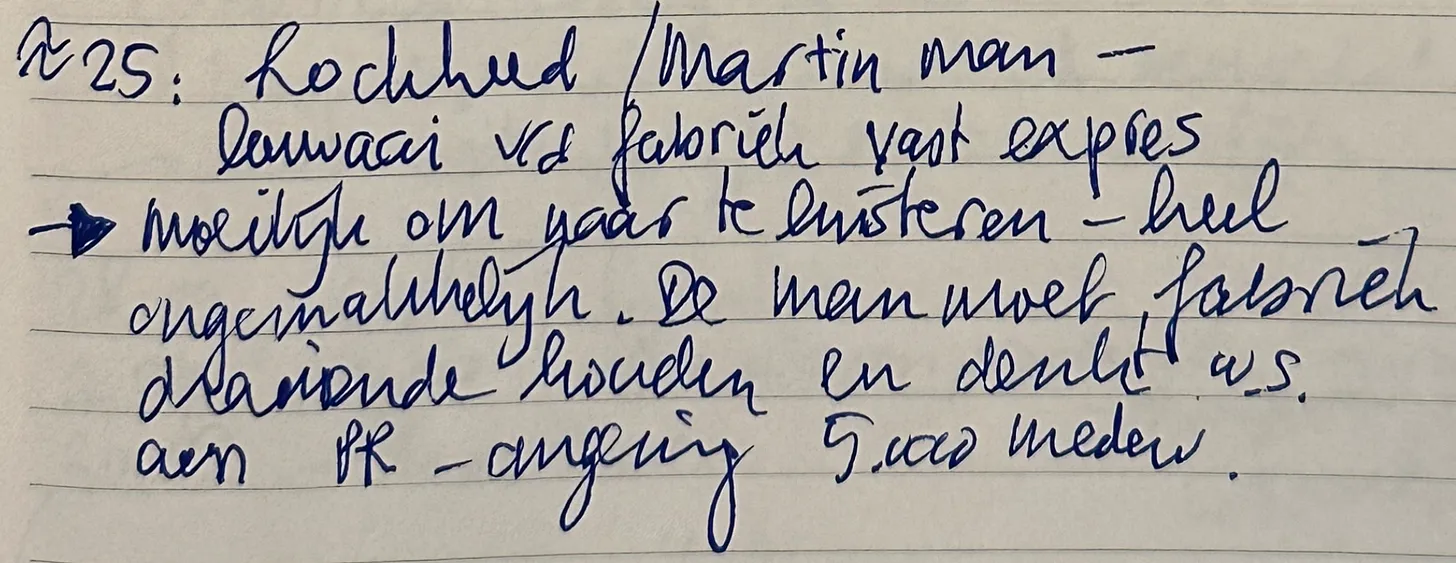 ≈ 25: Lockheed / Martin man –
Lawaai v/d fabriek vast expres
→ moeilijk om naar te luisteren – heel
ongemakkelijk. De man moet fabriek
draaiende houden en denkt w.s.
aan PR – omgeving 5.000 medew.